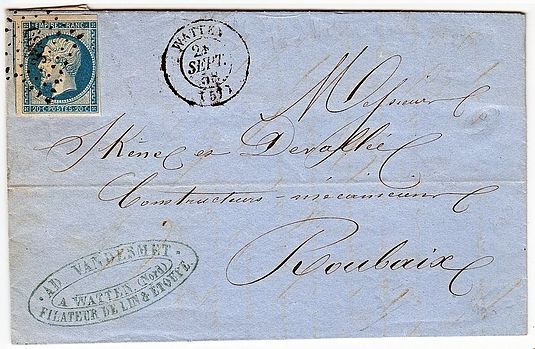 EMPIRE FRANC
20 C POSTES 20 C
WATTEN
21
SEPT.
(57)
Messieurs
Skène et Devallée
Constructeurs-mécaniciens
Roubaix
AD VANDESMET
A WATTEN (Nord)
FILATEUR DE LIN & ETOUPE